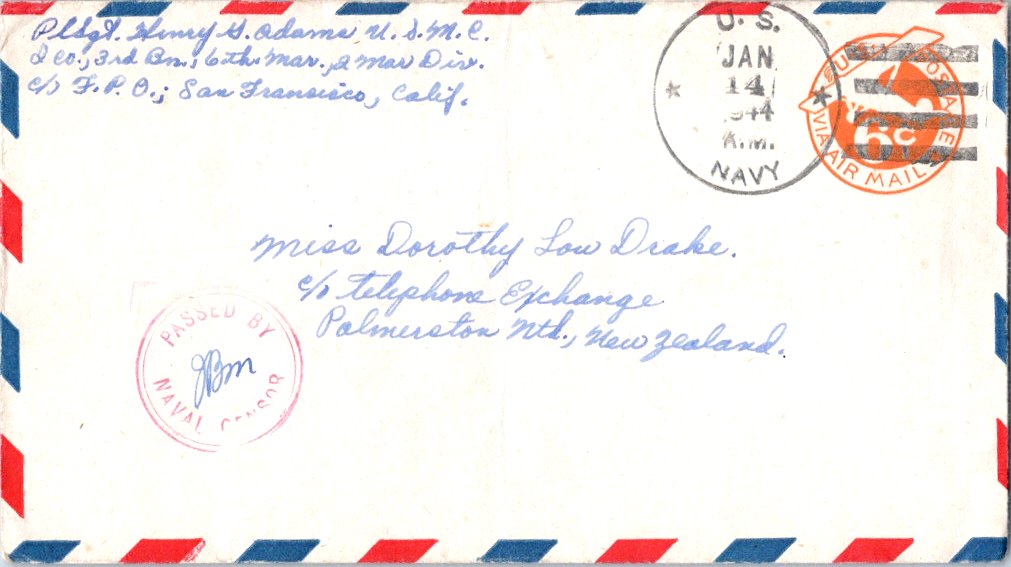 Plsgt. Henry G. Adams U. S. M. C.
I Co., 3rd Bn., 6th. Mar., 2 Mar Div.
c/o F. P. O.; San Francisco, Calif.
U. S.
JAN
14
1944
A.M.
NAVY
POSTAGE
6¢
VIA AIR MAIL
Miss Dorothy Low Drake.
c/o Telephone Exchange
Palmerston Nth., New Zealand.
PASSED BY
JBM
NAVAL CENSOR